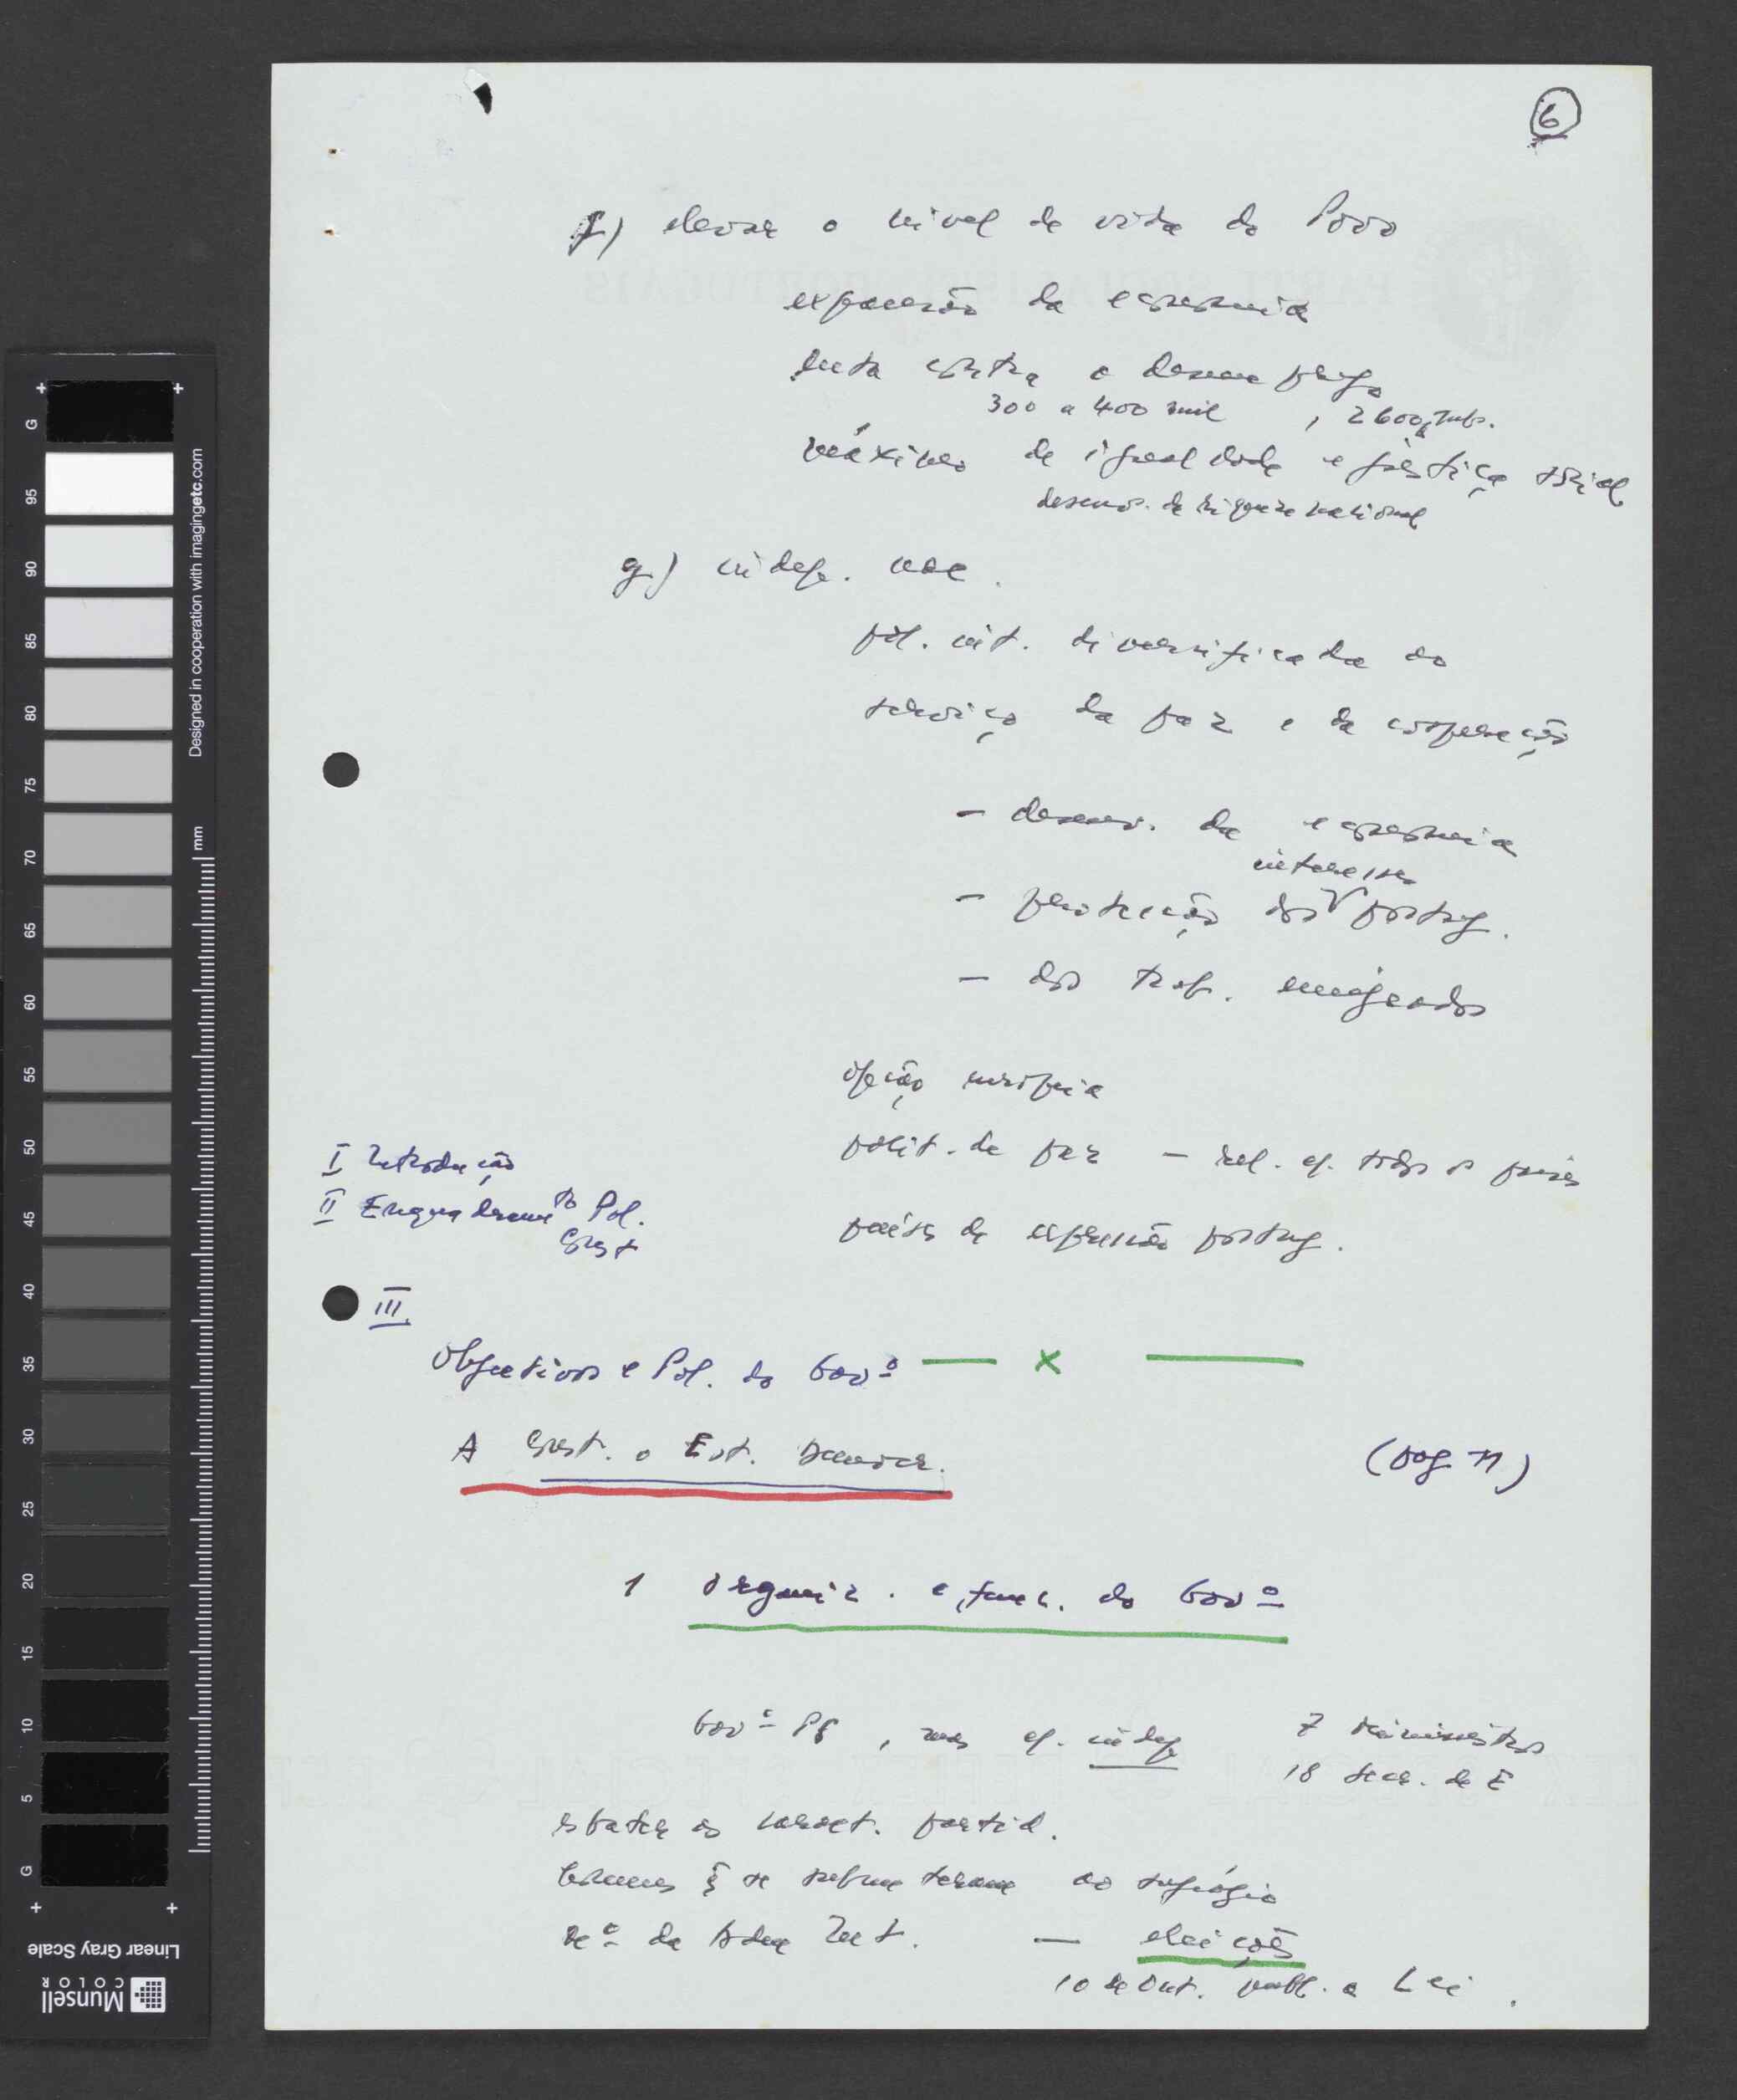 6
f) elevar o nivel de vida do Povo
expansão da economia
luta contra o desemprego
300 a 400 mil , 2600
máximo de igualdade e justiça social
desenv. da riqueza nacional
g) indep. nac.
pol. int. diversificada ao
serviço da paz e da cooperação
- desenv. da economia
interesses
- protecção dos portug.
- dos trab. emigrados
opção europeia
polit. de paz - rel. c/. todos os países
países de expressão portug.
I Introdução
II Enquadramto Pol.
Const
III
Objectivos e Pol. do Govº
— x —
A Const. o Est. Democr.
(pag 11)
1 organiz. e func. do Govº
Govº PS , mas c/. indep
7 Ministros
18 Secr. de E
esbater o caract. partid.
homens q̃ se submeteram ao sufrágio
Mº da Adm Int. — eleições
10 de Out. publ. a Lei.
Designed in cooperation with imagingetc.com
mm
G
95
90
85
80
75
70
65
60
55
50
45
40
35
30
25
20
15
10
5
G
Linear Gray Scale
Munsell
COLOR